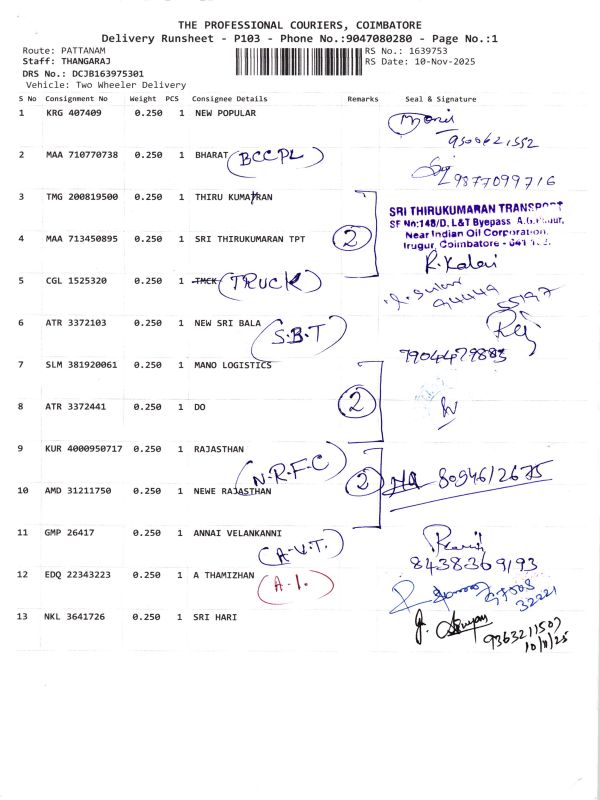 THE PROFESSIONAL COURIERS, COIMBATORE
Delivery Runsheet - P103 - Phone No.:9047080280 - Page No.:1
Route: PATTANAM
RS No.: 1639753
Staff: THANGARAJ
RS Date: 10-Nov-2025
DRS No.: DCJB163975301
Vehicle: Two Wheeler Delivery
S No Consignment No Weight PCS Consignee Details Remarks Seal & Signature
1 KRG 407409 0.250 1 NEW POPULAR
9500621552
2 MAA 710770738 0.250 1 BHARAT (BCCPL)
9877099716
3 TMG 200819500 0.250 1 THIRU KUMARAN
SRI THIRUKUMARAN TRANSPORT
SF No:148/D, L&T Byepass
Near Indian Oil Corporation,
Irugur, Coimbatore
4 MAA 713450895 0.250 1 SRI THIRUKUMARAN TPT 2
R. Kalai
5 CGL 1525320 0.250 1 TMCK (TRUCK)
94449 55197
6 ATR 3372103 0.250 1 NEW SRI BALA
(S.B.T)
7904479883
7 SLM 381920061 0.250 1 MANO LOGISTICS
2
8 ATR 3372441 0.250 1 DO
9 KUR 4000950717 0.250 1 RAJASTHAN
(N.R.F.C) 2 8094612675
10 AMD 31211750 0.250 1 NEWE RAJASTHAN
11 GMP 26417 0.250 1 ANNAI VELANKANNI
(A.V.T.)
8438369193
12 EDQ 22343223 0.250 1 A THAMIZHAN
(A.I.)
97508
32221
13 NKL 3641726 0.250 1 SRI HARI
9363211507
10/11/25